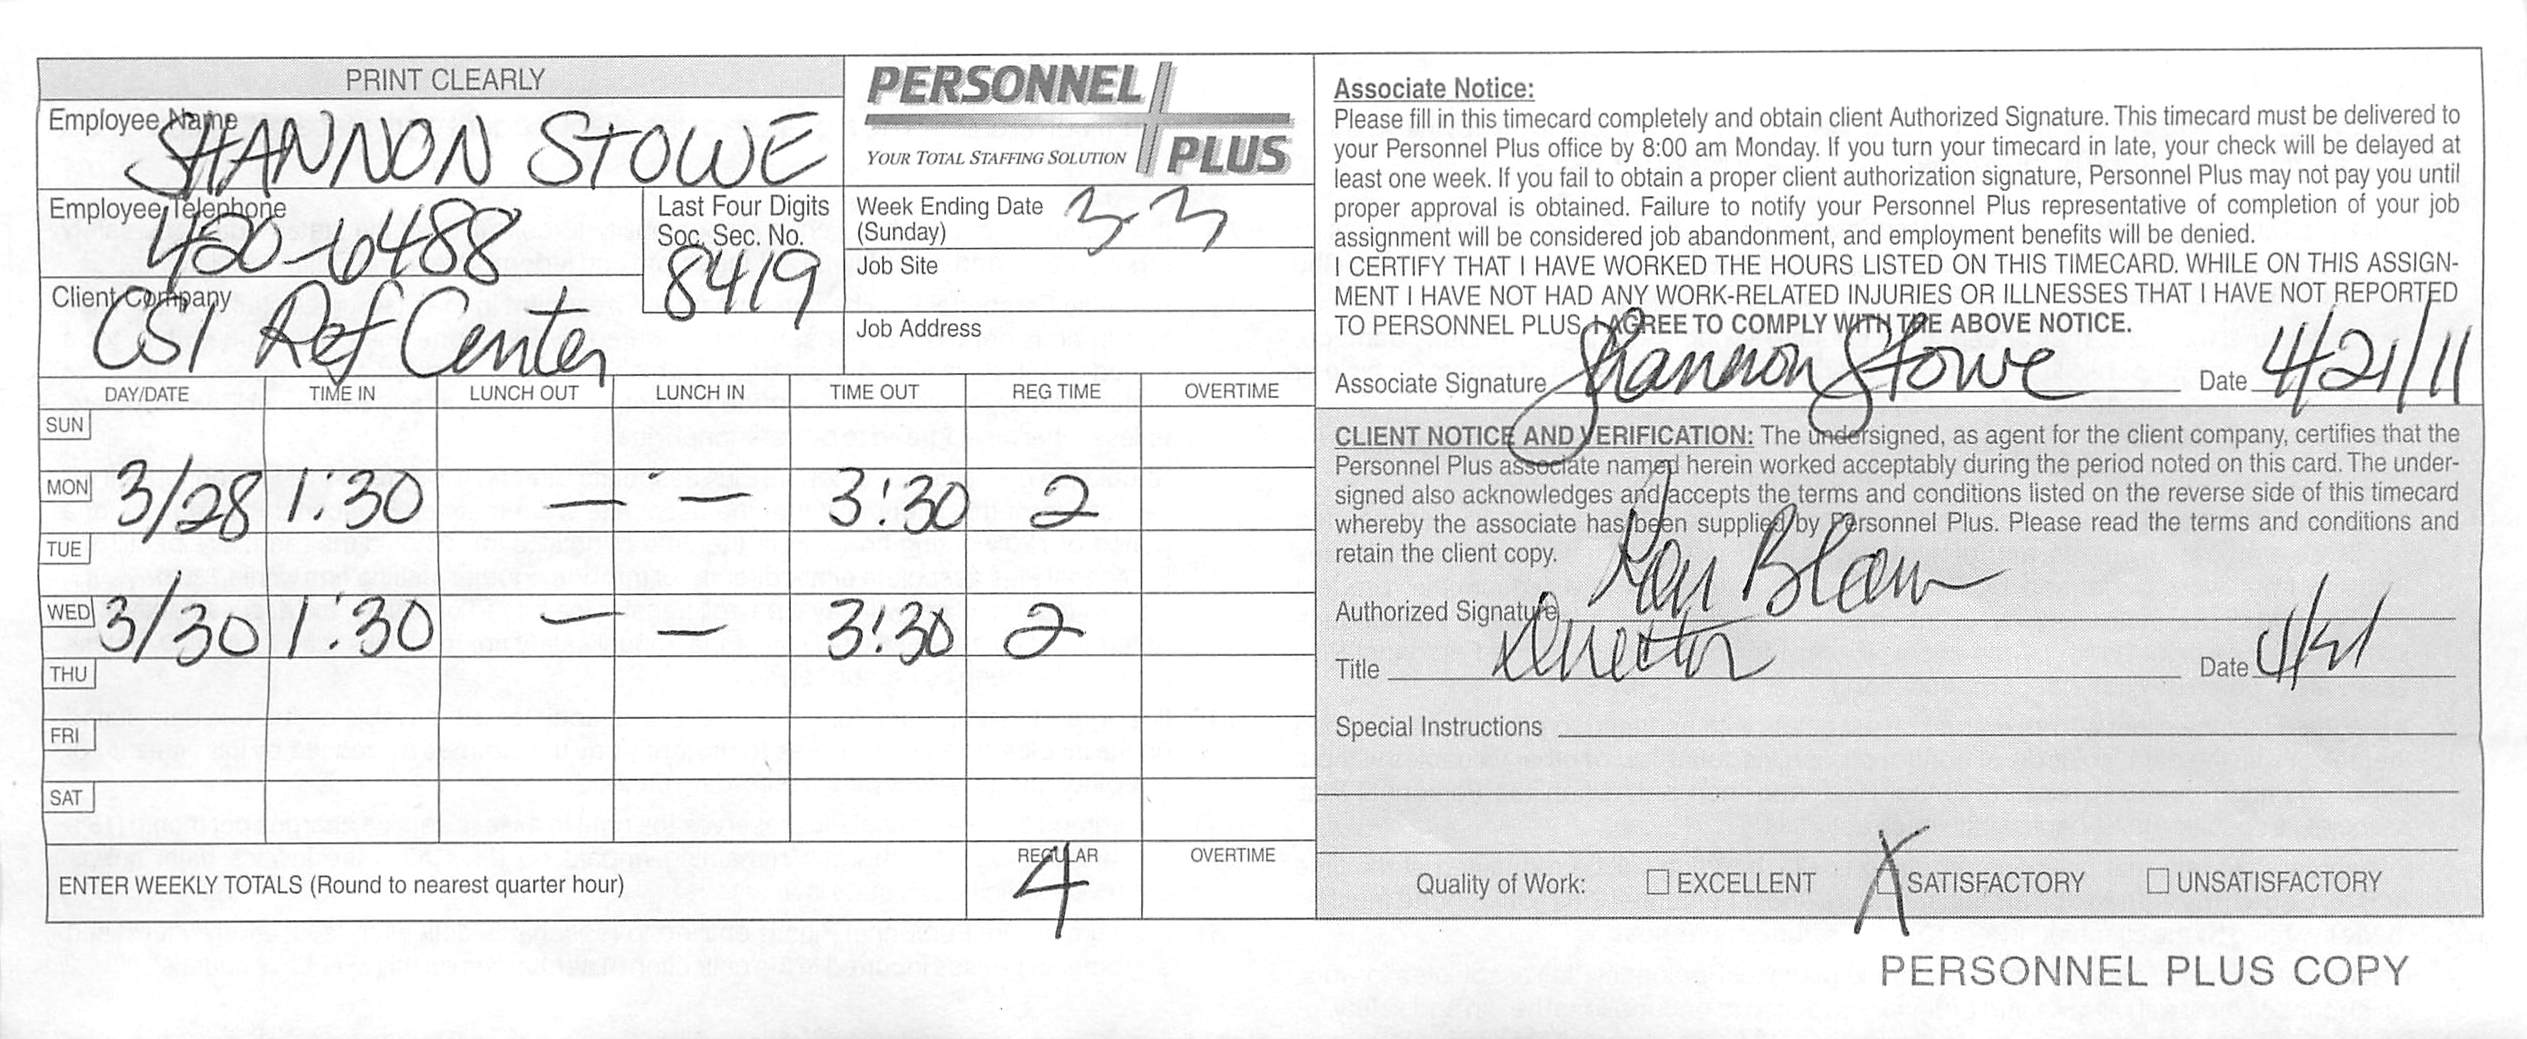 PRINT CLEARLY
Employee Name
SHANNON STOWE
Employee Telephone
420-6488
Last Four Digits
Soc. Sec. No.
8419
Client Company
CSI Ref Center
PERSONNEL
PLUS
YOUR TOTAL STAFFING SOLUTION
Week Ending Date
(Sunday)
3-3
Job Site
Job Address
DAY/DATE TIME IN LUNCH OUT LUNCH IN TIME OUT REG TIME OVERTIME
SUN
MON 3/28 1:30 — — 3:30 2
TUE
WED 3/30 1:30 — — 3:30 2
THU
FRI
SAT
ENTER WEEKLY TOTALS (Round to nearest quarter hour)
REGULAR
4
OVERTIME
Associate Notice:
Please fill in this timecard completely and obtain client Authorized Signature. This timecard must be delivered to
your Personnel Plus office by 8:00 am Monday. If you turn your timecard in late, your check will be delayed at
least one week. If you fail to obtain a proper client authorization signature, Personnel Plus may not pay you until
proper approval is obtained. Failure to notify your Personnel Plus representative of completion of your job
assignment will be considered job abandonment, and employment benefits will be denied.
I CERTIFY THAT I HAVE WORKED THE HOURS LISTED ON THIS TIMECARD. WHILE ON THIS ASSIGN-
MENT I HAVE NOT HAD ANY WORK-RELATED INJURIES OR ILLNESSES THAT I HAVE NOT REPORTED
TO PERSONNEL PLUS. I AGREE TO COMPLY WITH THE ABOVE NOTICE.
Associate Signature Shannon Stowe Date 4/21/11
CLIENT NOTICE AND VERIFICATION: The undersigned, as agent for the client company, certifies that the
Personnel Plus associate named herein worked acceptably during the period noted on this card. The under-
signed also acknowledges and accepts the terms and conditions listed on the reverse side of this timecard
whereby the associate has been supplied by Personnel Plus. Please read the terms and conditions and
retain the client copy.
Authorized Signature
Title Director Date 4/21
Special Instructions
Quality of Work: EXCELLENT X SATISFACTORY UNSATISFACTORY
PERSONNEL PLUS COPY